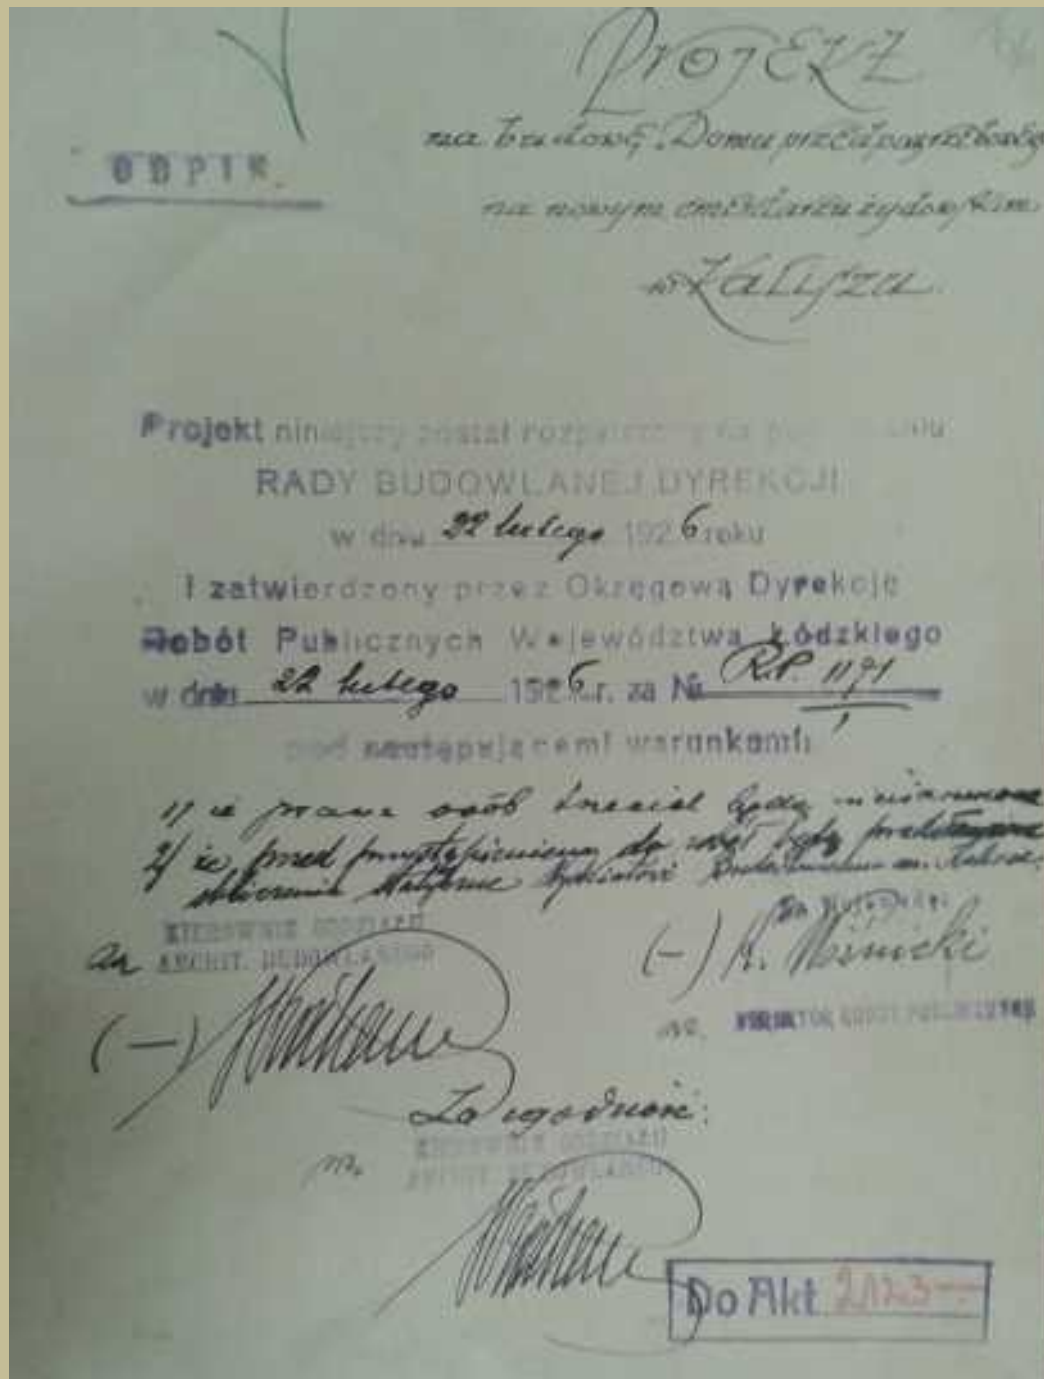 Projekt
na budowę Domu przedpogrzebowego
na nowym cmentarzu żydowskim
w Kaliszu
ODPIS.
Projekt niniejszy został rozpatrzony na
RADY BUDOWLANEJ DYREKCJI
w dniu 22 lutego 1926 roku
I zatwierdzony przez Okręgową Dyrekcję
Robót Publicznych Województwa Łódzkiego
w dniu 22 lutego 1926 r. za Nr R.P. 1171
pod następującemi warunkami:
1) że prawa osób trzecich będą
2) że przed przystąpieniem do robót będą przedstawione
obliczenia statyczne
KIEROWNIK ODDZIAŁU
ARCHIT. BUDOWLANEGO
Za Wojewodę:
(-)
(-)
DYREKTOR ROBÓT PUBLICZNYCH
Za zgodność:
KIEROWNIK ODDZIAŁU
ARCHIT. BUDOWLANEGO
Do Akt 2123